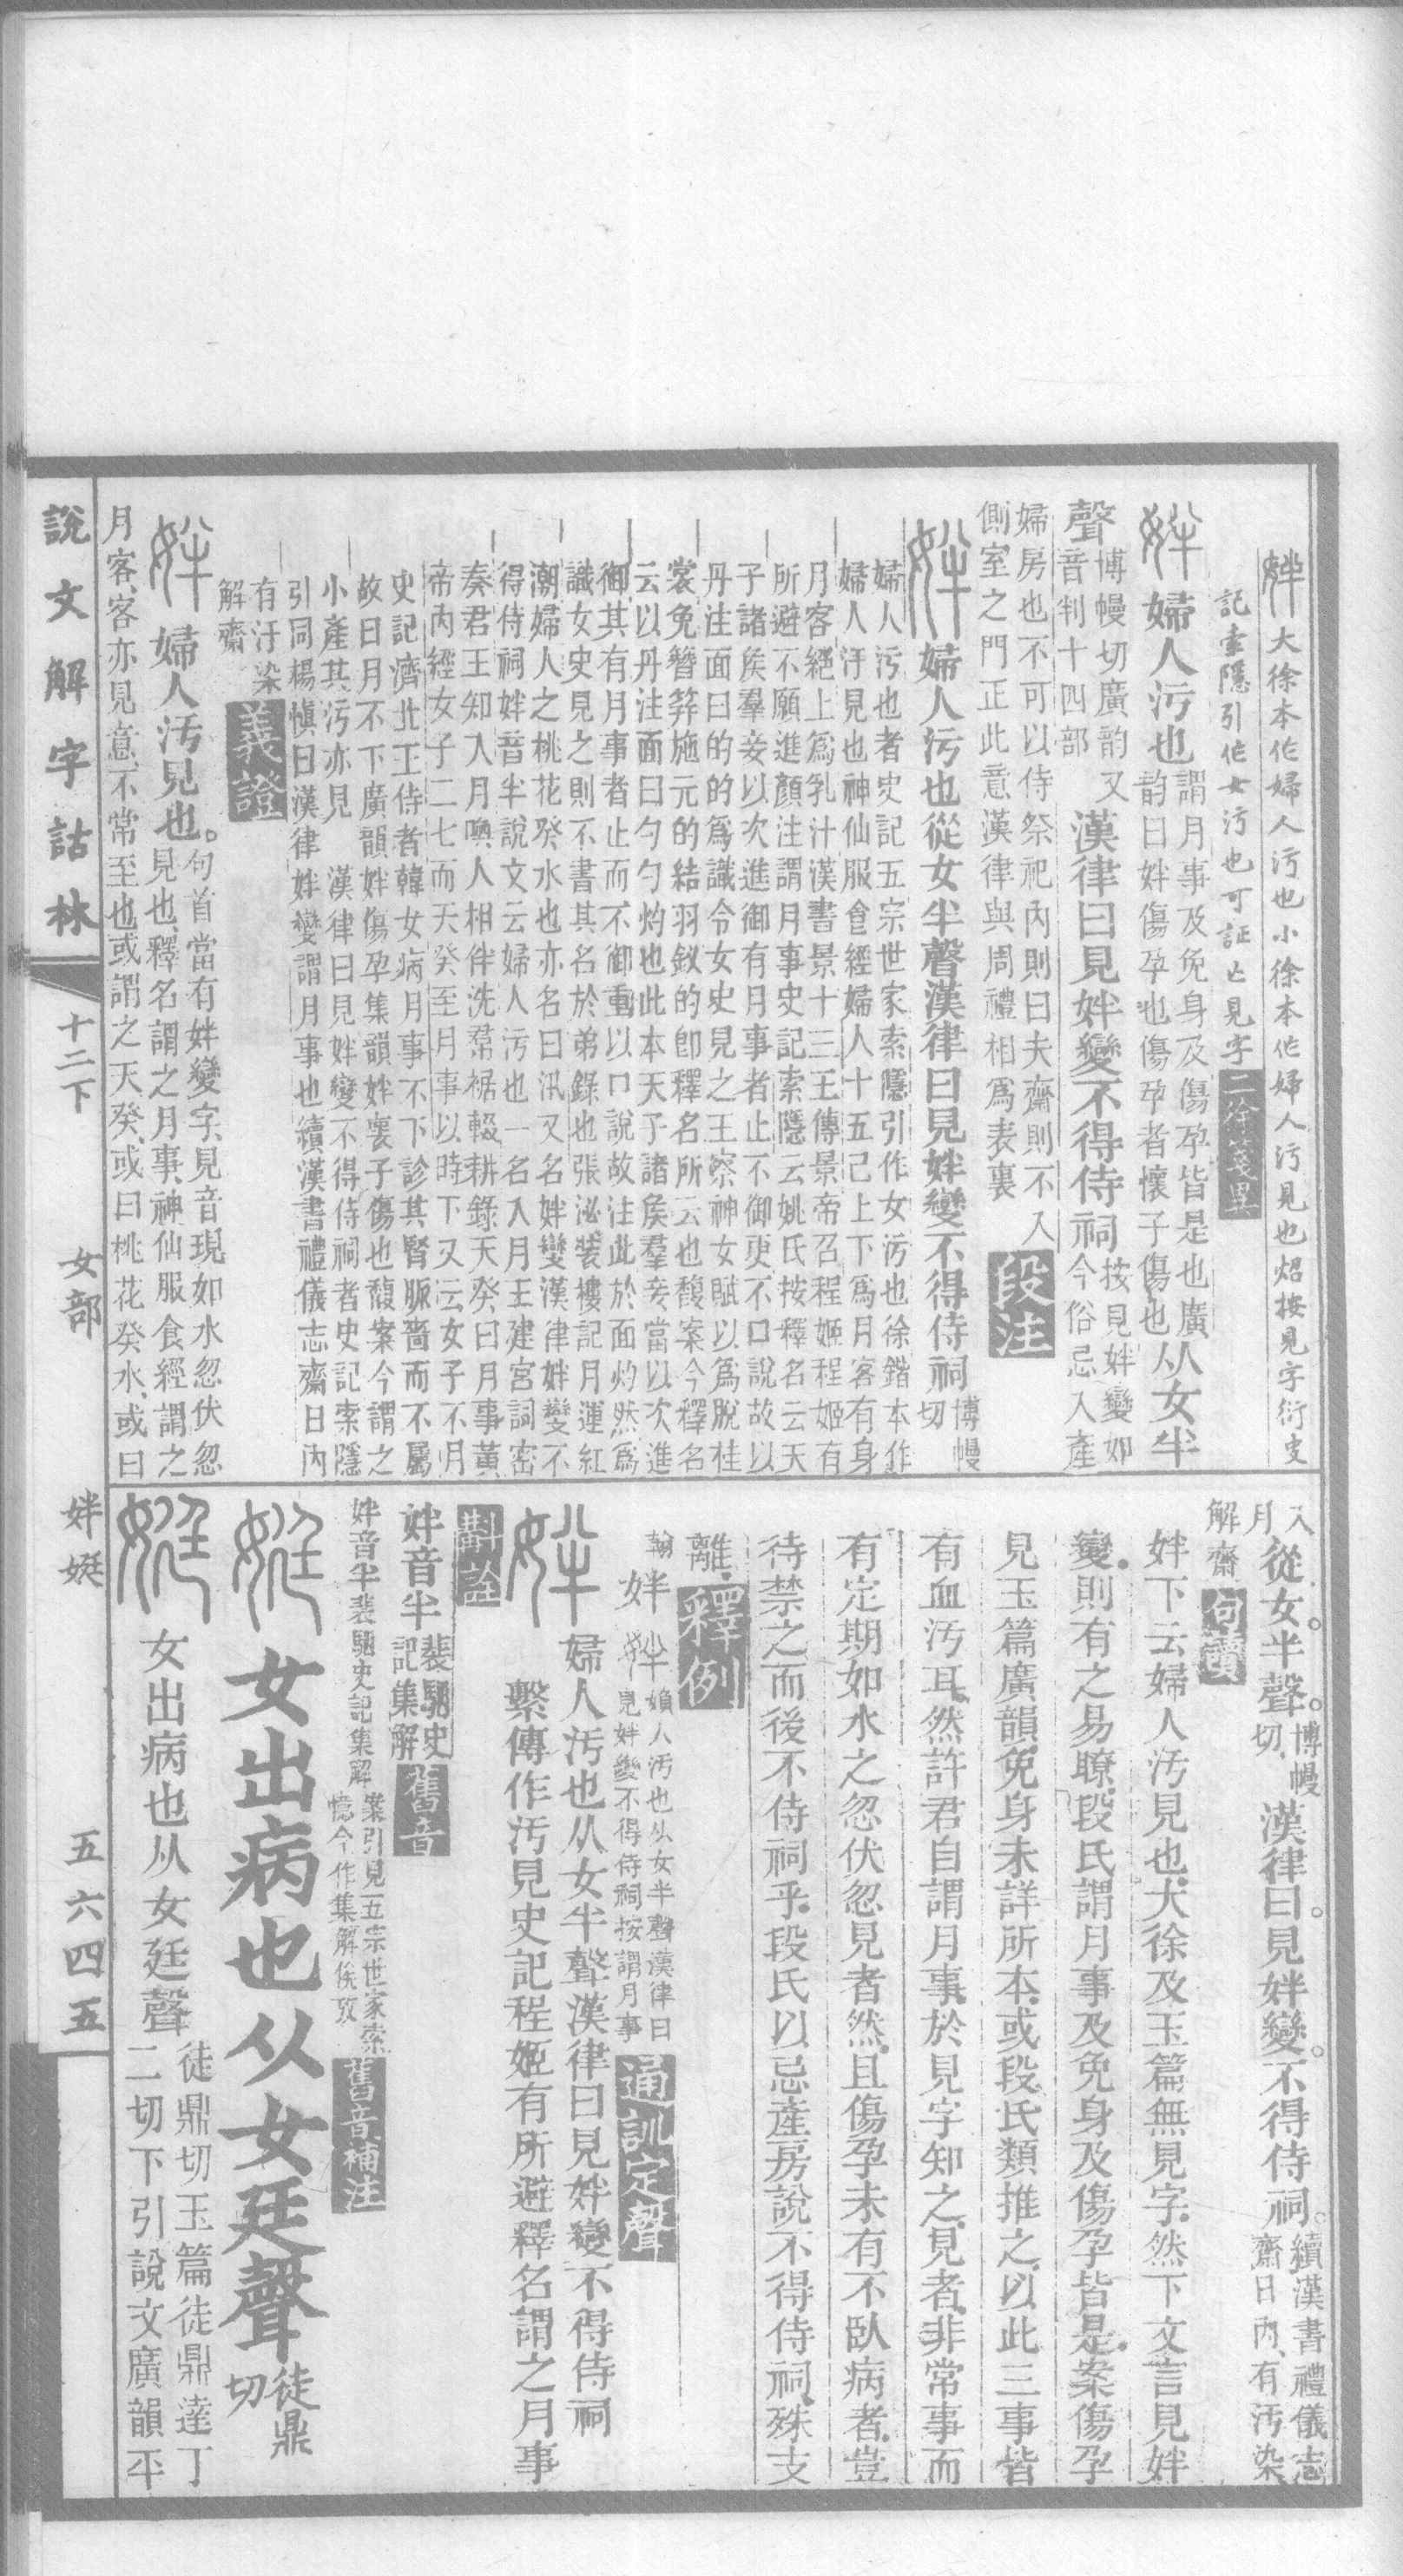 姅大徐本作婦人污也小徐本作婦人污見也炤按見字衍史
記索隱引作女污也可証亡見字二徐箋異
姅婦人污也謂月事及免身及傷孕皆是也廣
韵曰姅傷孕也傷孕者懷子傷也从女半
聲博幔切廣韵又
音判十四部漢律曰見姅變不得侍祠按見姅變如
今俗忌入產
婦房也不可以侍祭祀內則曰夫齋則不入
側室之門正此意漢律與周禮相爲表裏段注
姅婦人污也從女半聲漢律曰見姅變不得侍祠博幔
切
婦人污也者史記五宗世家索隱引作女污也徐鍇本作
婦人汙見也神仙服食經婦人十五已上下爲月客有身
月客絕上爲乳汁漢書景十三王傳景帝召程姬程姬有
所避不願進顏注謂月事史記索隱云姚氏按釋名云天
子諸矦羣妾以次進御有月事者止不御更不口說故以
丹注面曰的的爲識令女史見之王察神女賦以爲脫桂
裳免簪笄施元的結羽釵的卽釋名所云也馥案今釋名
云以丹注面曰勺勺灼也此本天子諸矦羣妾當以次進
御其有月事者止而不御重以口說故注此於面灼然爲
識女史見之則不書其名於弟錄也張泌裝樓記月運紅
潮婦人之桃花癸水也亦名曰汛又名姅變漢律姅變不
得侍祠姅音半說文云婦人污也一名入月王建宮詞密
奏君王知入月喚人相伴洗帬裾輟耕錄天癸曰月事黃
帝內經女子二七而天癸至月事以時下又云女子不月
史記濟北王侍者韓女病月事不下診其腎脈嗇而不屬
故曰月不下廣韻姅傷孕集韻姅褢子傷也馥案今謂之
小產其污亦見　漢律曰見姅變不得侍祠者史記索隱
引同楊愼曰漢律姅變謂月事也續漢書禮儀志齋日內
有汙染
解齋義證
姅婦人汚見也。句首當有姅變字、見音現如水忽伏忽
見也、釋名謂之月事、神仙服食經謂之
月客、客亦見意、不常至也、或謂之天癸、或曰桃花癸水、或曰
說文解字詁林　十二下　女部　姅娗　五六四五
入
月從女。半聲。博幔
切、漢律曰。見姅變。不得侍祠。續漢書禮儀志
齋日內、有汚染
解齋句讀
姅下云婦人汚見也、大徐及玉篇無見字、然下文言見姅
變、則有之易瞭、段氏謂月事及免身及傷孕皆是、案傷孕
見玉篇廣韻、免身未詳所本、或段氏類推之、以此三事皆
有血汚耳、然許君自謂月事、於見字知之、見者、非常事而
有定期如水之忽伏忽見者然、且傷孕未有不臥病者、豈
待禁之而後不侍祠乎、段氏以忌產房說不得侍祠、殊支
離、釋例
姅婦人汚也从女半聲漢律曰
見姅變不得侍祠按謂月事通訓定聲
姅婦人汚也从女半聲漢律曰見姅變不得侍祠
繫傳作汚見史記程姬有所避釋名謂之月事
斠詮
姅音半裴駰史
記集解舊音
姅音半裴駰史記集解案引見五宗世家索
隱今作集解俟攷舊音補注
娗女出病也从女廷聲徒鼎
切
娗女出病也从女廷聲徒鼎切玉篇徒鼎達丁
二切下引說文廣韻平